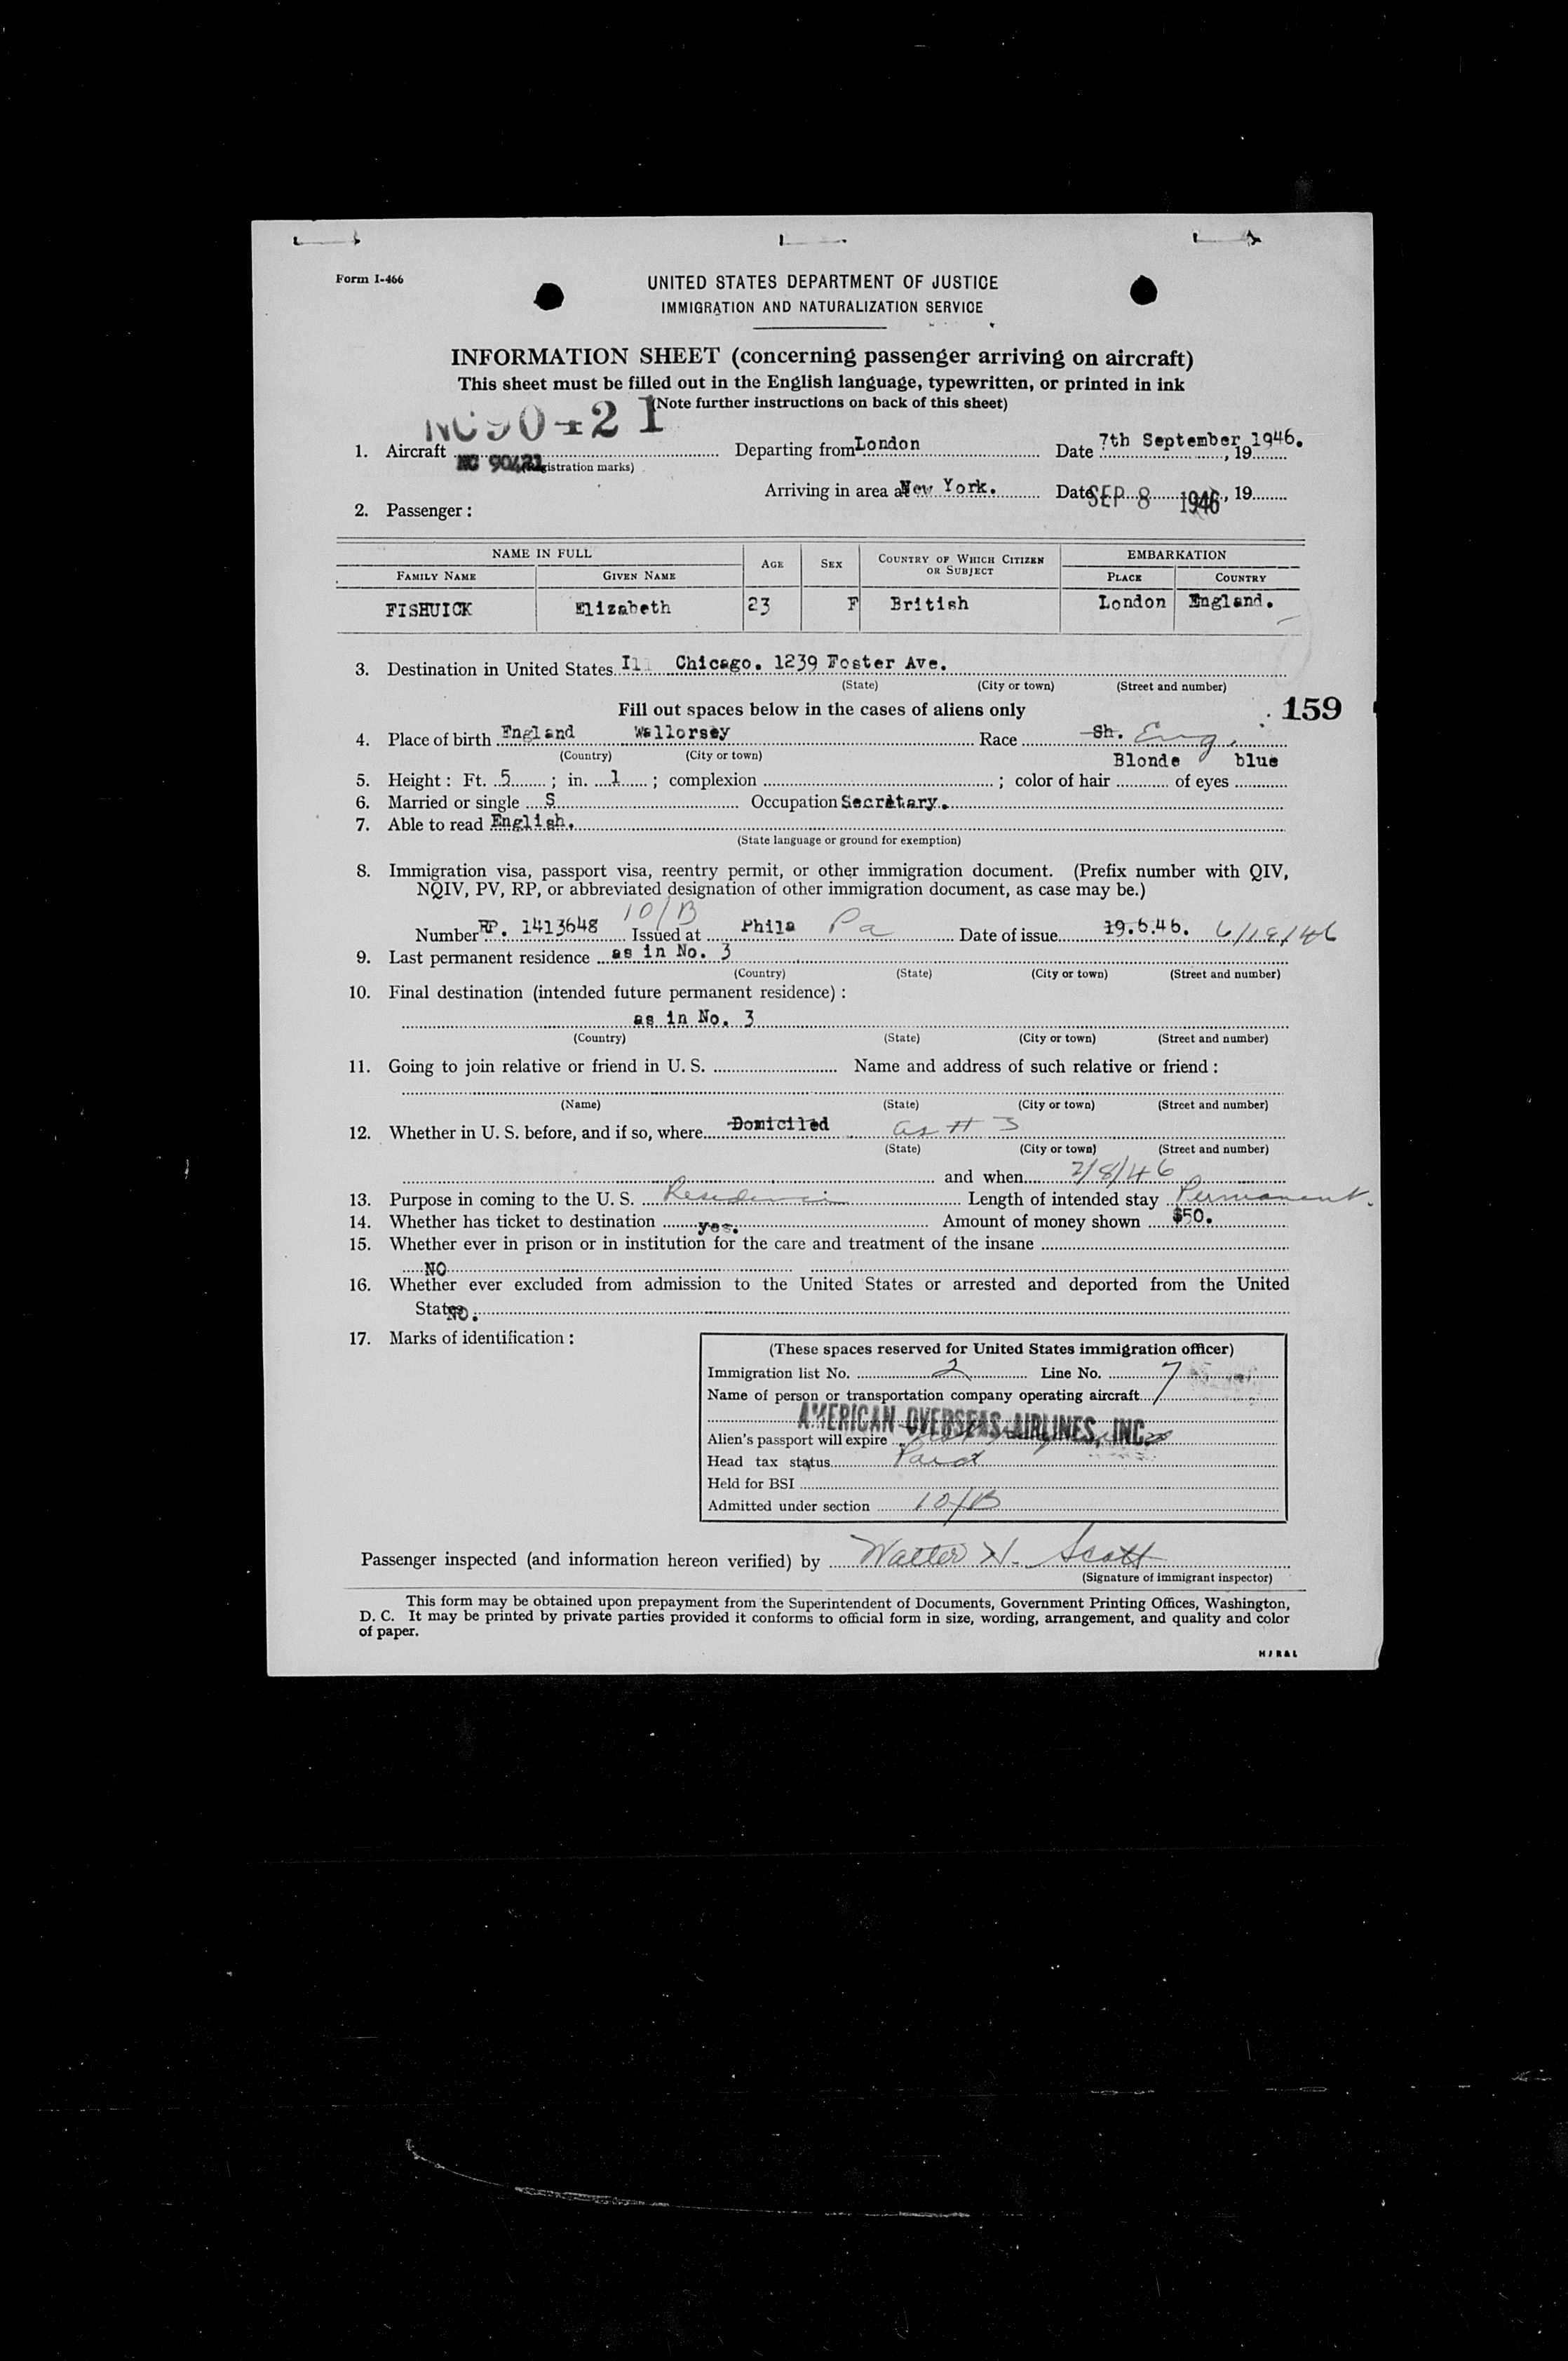 Form I-466
UNITED STATES DEPARTMENT OF JUSTICE
IMMIGRATION AND NATURALIZATION SERVICE
INFORMATION SHEET (concerning passenger arriving on aircraft)
This sheet must be filled out in the English language, typewritten, or printed in ink
(Note further instructions on back of this sheet)
NC90421
1. Aircraft NC 90421 Departing from London Date 7th September, 1946. , 19
(Registration marks)
Arriving in area at New York. Date SEP 8 1946, 19
2. Passenger:
NAME IN FULL AGE SEX COUNTRY OF WHICH CITIZEN OR SUBJECT EMBARKATION
FAMILY NAME GIVEN NAME PLACE COUNTRY
FISHUICK Elizabeth 23 F British London England.
3. Destination in United States Ill Chicago. 1239 Foster Ave.
(State) (City or town) (Street and number)
Fill out spaces below in the cases of aliens only
159
4. Place of birth England Wallorsey Race Sh. Eng.
(Country) (City or town)
5. Height: Ft. 5; in. 1; complexion ; color of hair Blonde of eyes blue
6. Married or single S Occupation Secretary.
7. Able to read English.
(State language or ground for exemption)
8. Immigration visa, passport visa, reentry permit, or other immigration document. (Prefix number with QIV,
NQIV, PV, RP, or abbreviated designation of other immigration document, as case may be.)
10/B
Number RP. 1413648 Issued at Phila Pa Date of issue 19.6.46. 6/19/46
9. Last permanent residence as in No. 3
(Country) (State) (City or town) (Street and number)
10. Final destination (intended future permanent residence):
as in No. 3
(Country) (State) (City or town) (Street and number)
11. Going to join relative or friend in U. S. Name and address of such relative or friend:
(Name) (State) (City or town) (Street and number)
12. Whether in U. S. before, and if so, where Domiciled as # 3
(State) (City or town) (Street and number)
and when 7/8/46
13. Purpose in coming to the U. S. Residence Length of intended stay Permanent.
14. Whether has ticket to destination yes. Amount of money shown $50.
15. Whether ever in prison or in institution for the care and treatment of the insane
NO
16. Whether ever excluded from admission to the United States or arrested and deported from the United
States NO.
17. Marks of identification:
(These spaces reserved for United States immigration officer)
Immigration list No. 2 Line No. 7
Name of person or transportation company operating aircraft
AMERICAN OVERSEAS AIRLINES, INC.
Alien's passport will expire
Head tax status Paid
Held for BSI
Admitted under section 10/B
Passenger inspected (and information hereon verified) by Walter H. Scott
(Signature of immigrant inspector)
This form may be obtained upon prepayment from the Superintendent of Documents, Government Printing Offices, Washington,
D. C. It may be printed by private parties provided it conforms to official form in size, wording, arrangement, and quality and color
of paper.
HJR&L